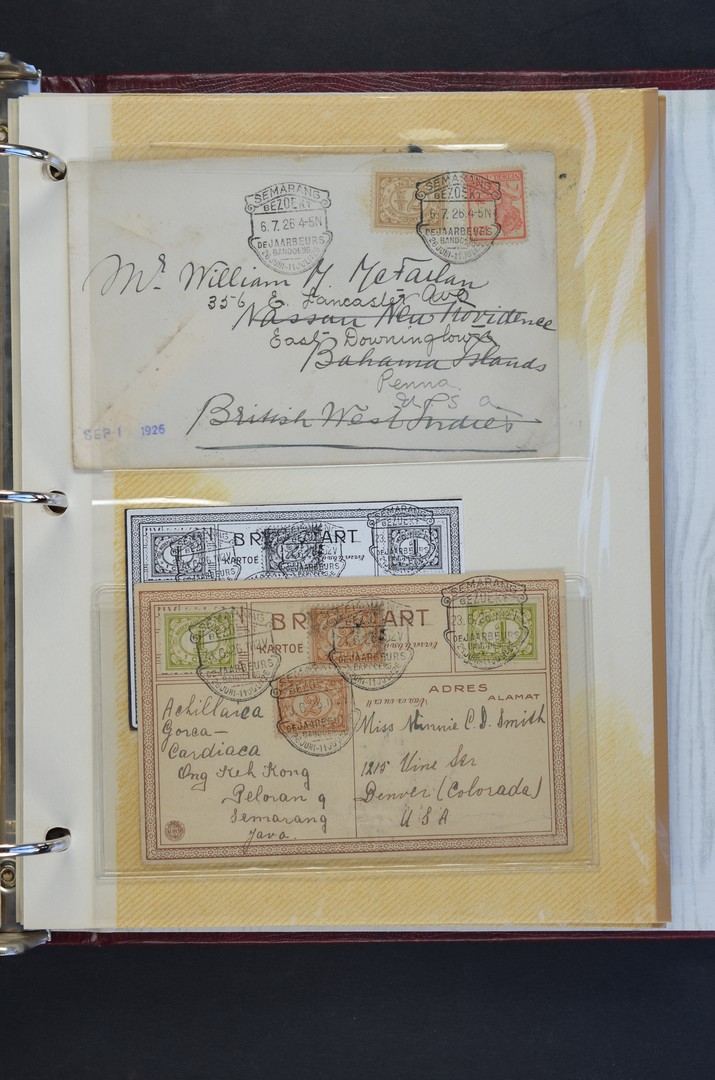 SEMARANG
BEZOEKT
6.7.26.4-5N
DE JAARBEURS
BANDOENG
26 JUNI-11 JULI
SEMARANG
BEZOEKT
6.7.26.4-5N
DE JAARBEURS
BANDOENG
Mr. William M. McFarlan
356 E. Lancaster Ave
Nassau New Providence
East Downingtown
Bahama Islands
Penna.
U S a
British West Indies
SEP 1 1926
BR ART
KARTOE
SEMARANG
BEZOEKT
DE JAARBEURS
SEMARANG
BEZOEKT
23.6.26.
DE JAARBEURS
BR ART
KARTOE
DE JAARBEURS
JUNI-11 JULI
DE JAARBEURS
2½
ADRES
ALAMAT
Achillaica
Gorca-
Cardiaca
Ong Kek Kong
Peloran 9
Semarang
Java.
Miss Minnie C. D. Smith
1215 Vine Ser
Denver (Colorada)
U S A